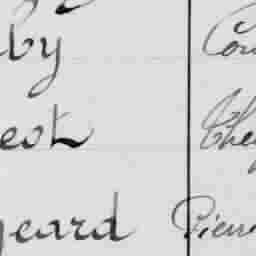 by Cou
eot Che
geard Pierr